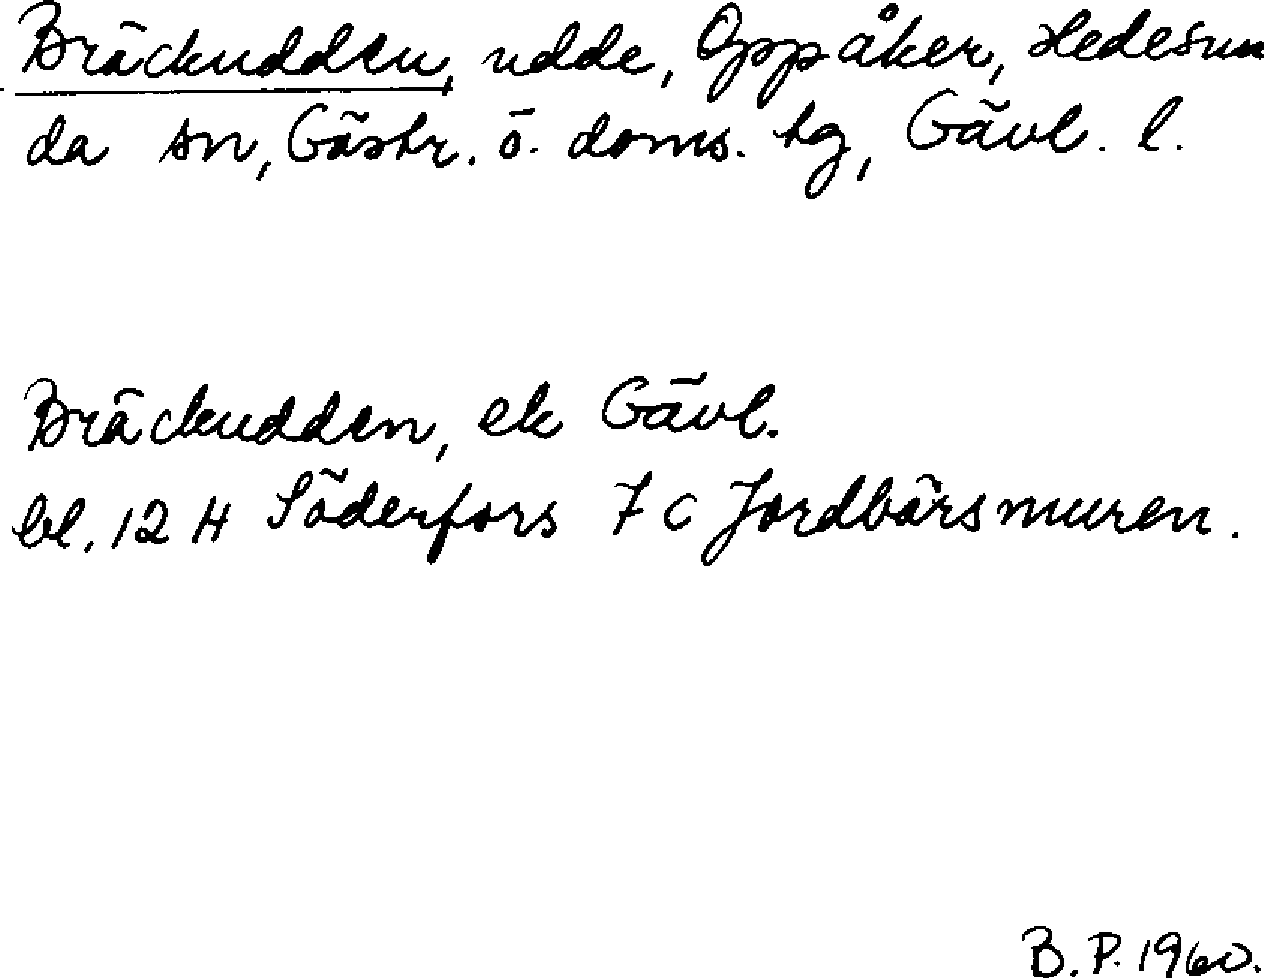 Bräckudden, udde, Oppåker, Hedesun
da sn, Gästr. ö. doms. hg, Gävl. l.
Bräckudden, ek Gävl.
bl. 12 H Söderfors 7 c Jordbärsmuren.
B. P. 1960.